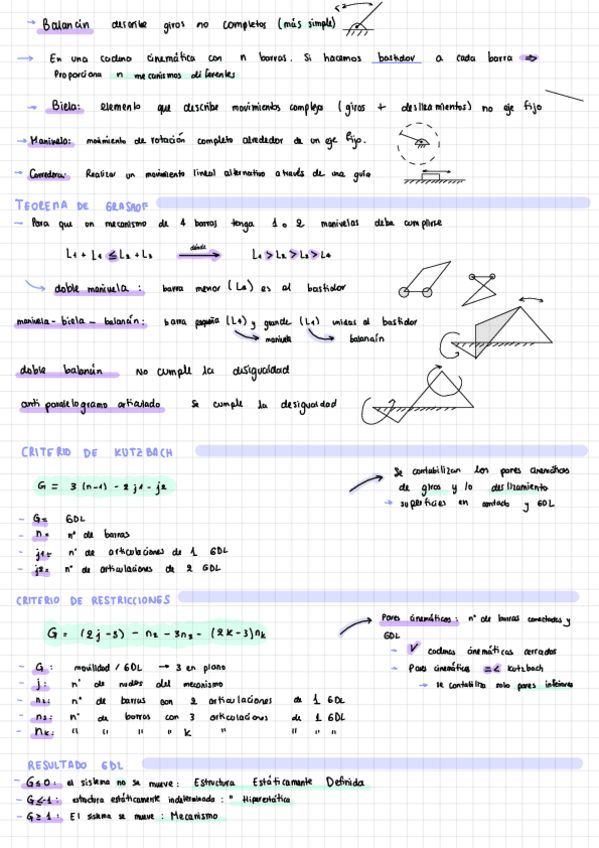 → Balancín describe giros no completos (más simple)
→ En una cadena cinemática con n barras. Si hacemos bastidor a cada barra ⇒
Proporciona n mecanismos diferentes
→ Biela: elemento que describe movimientos complejos (giros + deslizamientos) no eje fijo
→ Manivela: movimiento de rotación completo alrededor de un eje fijo.
→ Corredera: Realizar un movimiento lineal alternativo a través de una guía
TEOREMA DE GRASHOF
→ Para que un mecanismo de 4 barras tenga 1 o 2 manivelas debe cumplirse
L1 + L4 ≤ L2 + L3 donde → L1 > L2 > L3 > L4
doble manivela : barra menor (L4) es el bastidor
manivela - biela - balancín: barra pequeña (L4) y grande (L1) unidas al bastidor
→ manivela → balancín
doble balancín No cumple la desigualdad
anti paralelogramo articulado Se cumple la desigualdad
CRITERIO DE KUTZBACH
G = 3 (n-1) - 2 j1 - j2
→ Se contabilizan los pares cinemáticos
de giros y lo deslizamiento
→ superficies en contacto y GDL
- G = GDL
- n = nº de barras
- j1 = nº de articulaciones de 1 GDL
- j2 = nº de articulaciones de 2 GDL
CRITERIO DE RESTRICCIONES
G = (2j - 3) - n2 - 3n3 - (2k - 3)nk
→ Pares cinemáticos : nº de barras conectadas y
GDL
→ V cadenas cinemáticas cerradas
→ Pares cinemáticos =< Kutzbach
→ se contabiliza solo pares inferiores
- G : movilidad / GDL → 3 en plano
- j : nº de nudos del mecanismo
- n2 : nº de barras con 2 articulaciones de 1 GDL
- n3 : nº de barras con 3 articulaciones de 1 GDL
- nk : " " " " k " " " "
RESULTADO GDL
- G ≤ 0 : el sistema no se mueve : Estructura Estáticamente Definida
- G ≤ -1 : estructura estáticamente indeterminada : " Hiperestática
- G ≥ 1 : El sistema se mueve : Mecanismo